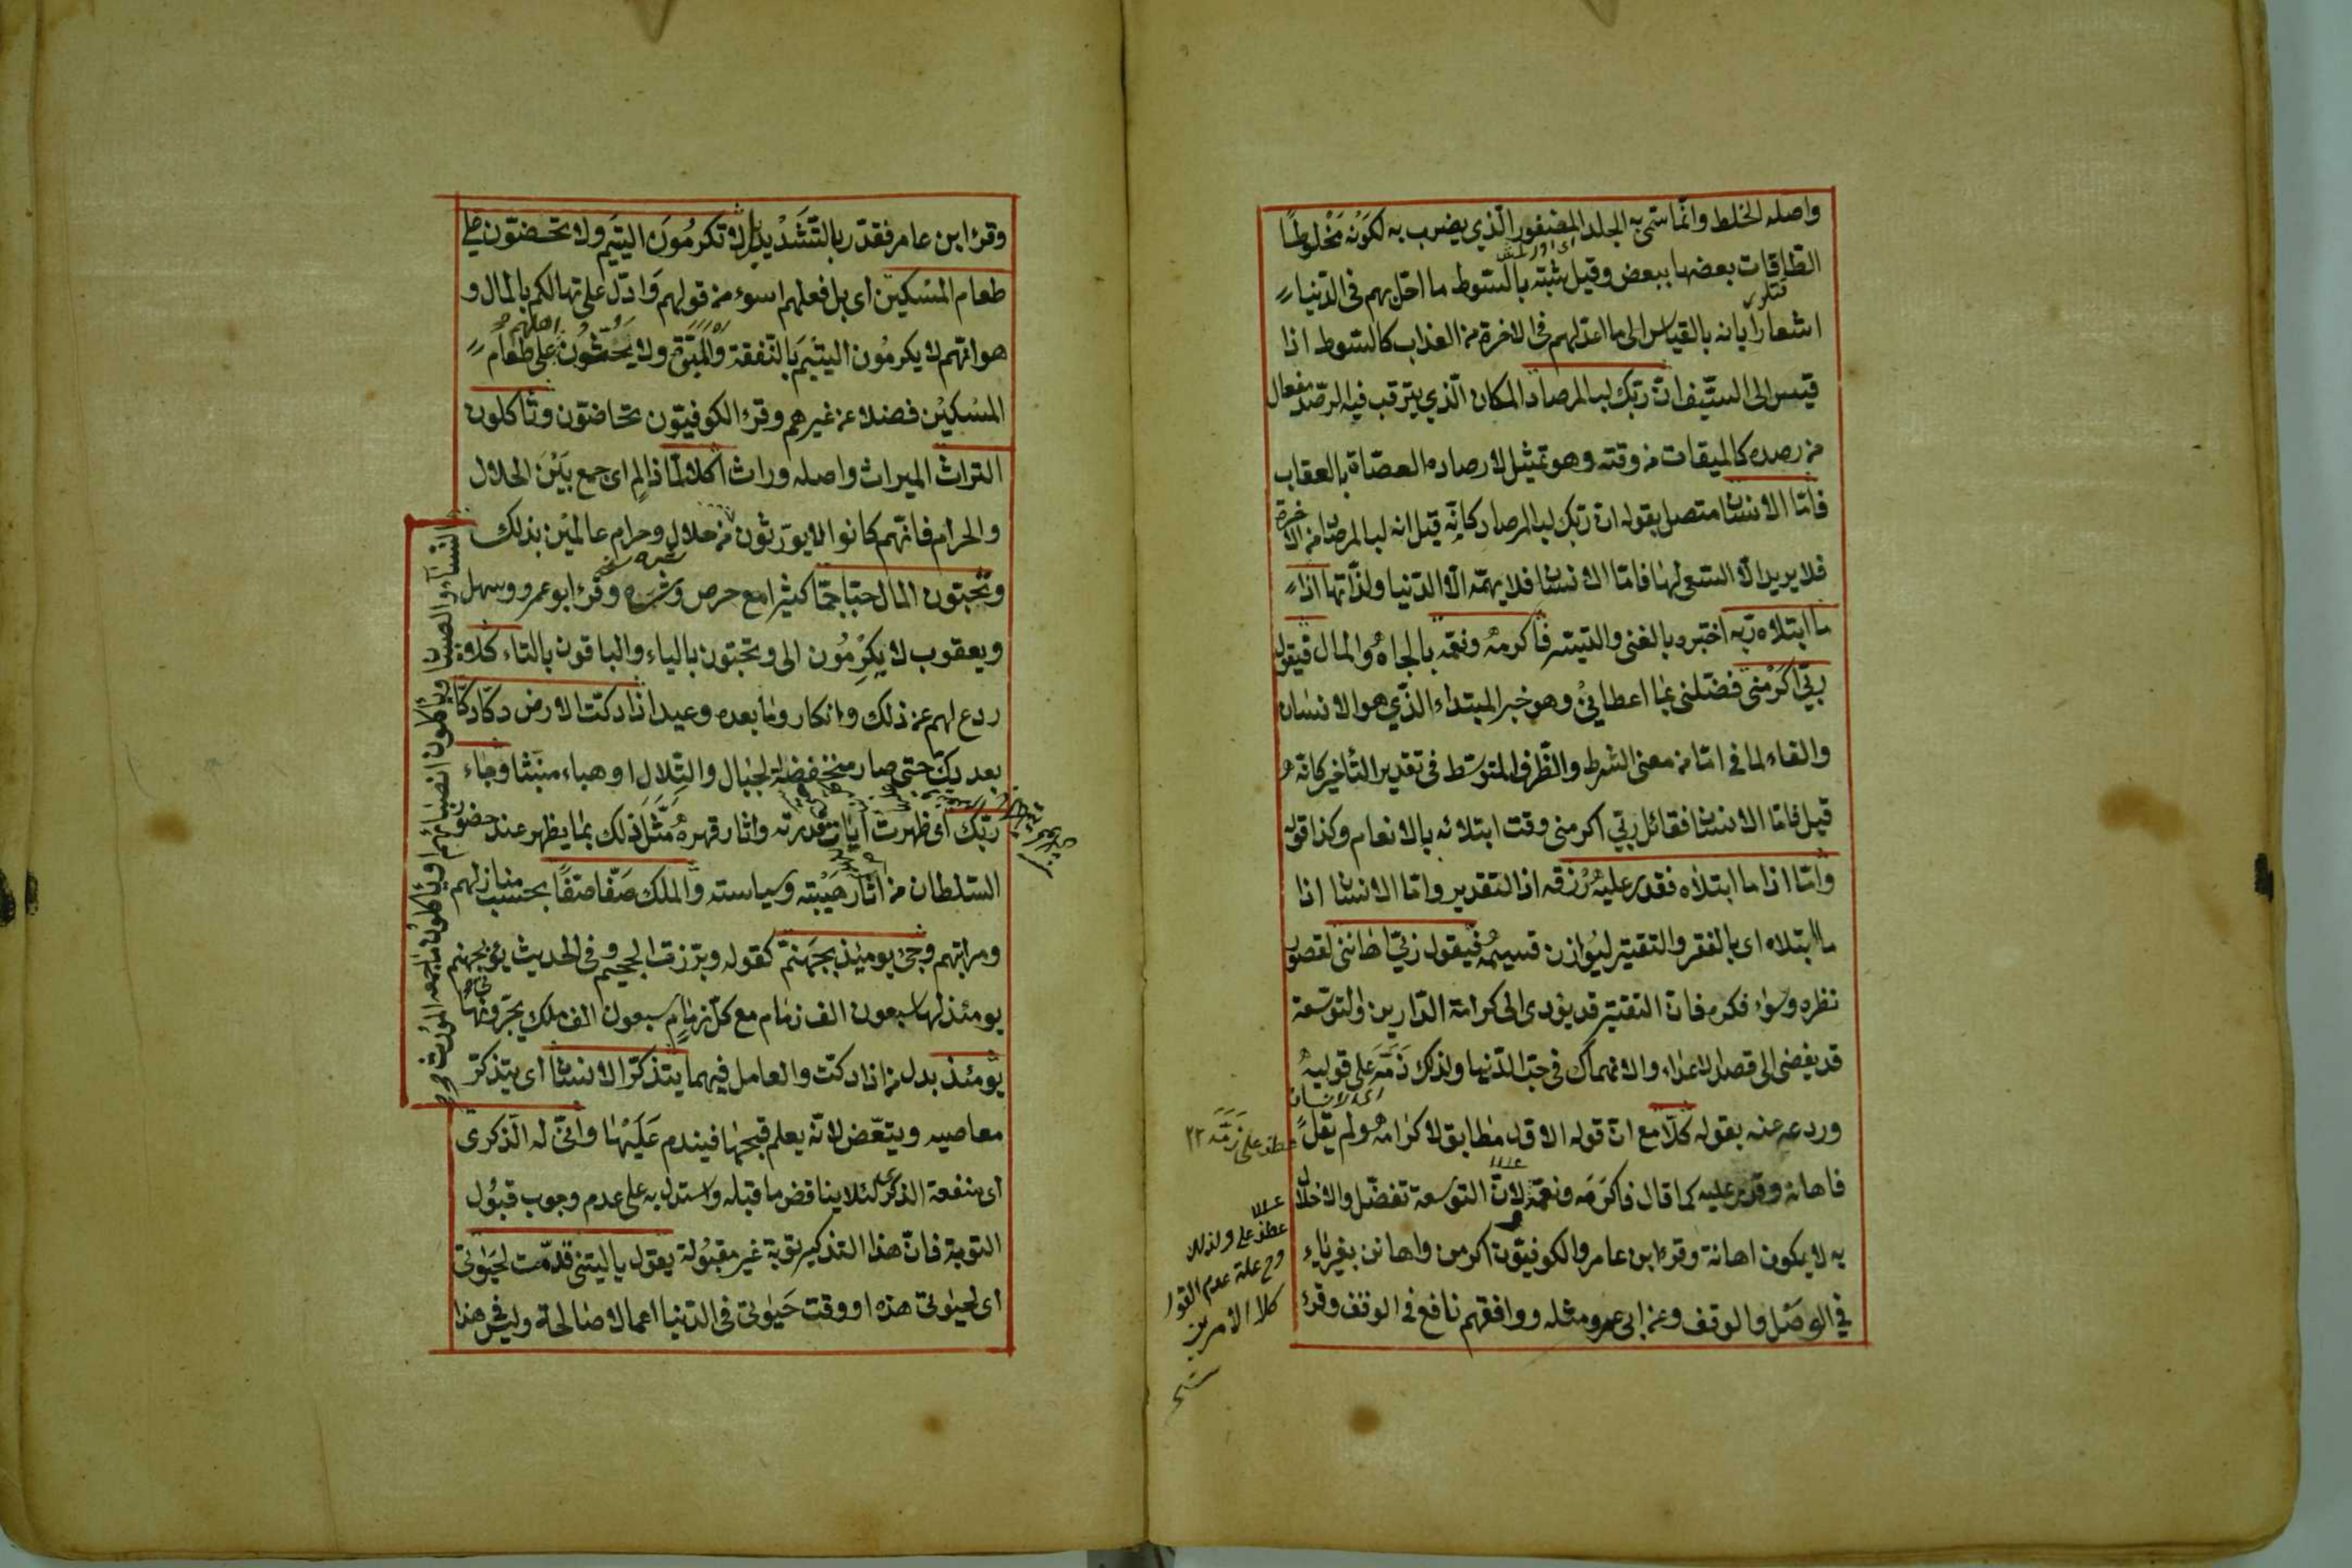 واصله الخلط وانّما سمّى به الجلد المضفور الّذي يضرب به لكونه مَخْلوطًا
الطاقات بعضها ببعض وقيل شبّه بالسّوط ما احلّ بهم فى الدّنيا
اشعارًا بانه بالقياس الى ما اعدّ لهم فى الاخرة من العذاب كالسّوط اذا
قيس الى السّيف انّ ربّك لبالمرصاد المكان الّذي يترقب فيه الرصد مفعال
من رصده كالميقات من وقته وهو تمثيل لارصاده العصاة بالعقاب
فامّا الانسان متصل بقوله ان ربّك لبالمرصاد كانّه قيل انه لبالمرصاد من الاخرة
فلا يريد الّا السّعى لها فامّا الانسان فلا يهمّه الّا الدّنيا ولذّاتها اذا
ما ابتلاه ربّه اختبره بالغنى واليسر فاكرمه ونعّمه بالجاه والمال فيقول
ربّي اكرمنى فضّلنى بما اعطاني وهو خبر المبتداء الذّي هو الانسان
والفاء لما فى امّا من معنى الشرط والظّرف المتوسّط فى تقدير التأخير كانّه
قيل فامّا الانسان فقائل ربّي اكرمنى وقت ابتلائه بالانعام وكذا قوله
وامّا اذا ما ابتلاه فقدر عليه رزقه اذ التقدير وامّا الانسان اذا
ما ابتلاه اى بالفقر والتقتير ليوازن قسيمه فيقول ربّي اهاننى لقصور
نظره وسوء فكره فان التقتير قد يؤدى الى كرامة الدّارين والتوسّعة
قد يفضى الى قصد الاعداء والانهماك فى حبّ الدّنيا ولذلك ذمّه على قوليه
وردعه عنه بقوله كلّا مع انّ قوله الاوّل مطابق لاكرامه ولم يقل
فاهانه وقدر عليه كما قال فاكرمه ونعّمه لانّ التوسعة تفضّل والاخلال
به لا يكون اهانة وقرء ابن عامر والكوفيّون اكرمن واهانن بغير ياء
في الوصل والوقف وعن ابى عمرو مثله ووافقهم نافع فى الوقف وقرء
عطف على ذمّه
عطف على ولذلك
وح علة عدم القول
كلا الأمرين
وقرء ابن عامر فقدّر بالتّشديد بل لا تكرمون اليتيم ولا تحضّون على
طعام المسكين اى بل فعلهم اسوء من قولهم وادلّ على تهالكم بالمال و
هو انّهم لا يكرمون اليتيم بالنّفقة والمبرّة ولا يحثّون اهلهم على طعام
المسكين فضلا عن غيرهم وقرء الكوفيّون تحاضّون وتأكلون
التراث الميراث واصله وراث اكلا لمّا ذا لمٍ اى جمع بين الحلال
والحرام فانّهم كانوا لا يورّثون
النساء والصبيان ويأكلون انصبائهم او يأكلون ما جمعه المورث
من حلال وحرام عالمين بذلك
وتحبّون المال حبّا جمّا كثيرا مع حرص وشره وقرء ابو عمرو وسهل
ويعقوب لا يكرمون الى ويحبّون بالياء والباقون بالتاء كلّا
ردع لهم عن ذلك وانكار وما بعده وعيد اذا دكّت الارض دكّا دكّا
بعد دكّ حتى صار منخفضة الجبال والتّلال او هباء منبثّا وجاء
ربّك اى ظهرت ايات قدرته واثار قهره مثّل ذلك بما يظهر عند حضور
السّلطان من اثار هيبته وسياسته والملك صفّا صفّا بحسب منازلهم
ومراتبهم وجئ يومئذ بجهنّم كقوله وبرّزت الجحيم وفى الحديث يؤتى بجهنم
يومئذ لها سبعون الف زمام مع كلّ زمام سبعون الف ملك يجرّونها
يومئذ بدل من اذا دكّت والعامل فيهما يتذكّر الانسان اى يتذكّر
معاصيه ويتّعظ لانّه يعلم قبحها فيندم عليها وانّى له الذّكرى
اى منفعة الذكرى لئلا يناقض ما قبله واستدل به على عدم وجوب قبول
التوبة فانّ هذا التذكير توبة غير مقبولة يقول يا ليتنى قدّمت لحيوتى
اى لحيوتى هذه او وقت حيوتى فى الدّنيا اعمالا صالحة وليس فى هذا